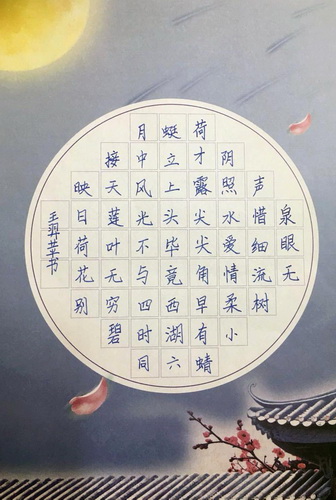 泉眼无
声惜细流树
阴照水爱情柔小
荷才露尖尖角早有蜻
蜓立上头毕竟西湖六
月中风光不与四时同
接天莲叶无穷碧
映日荷花别